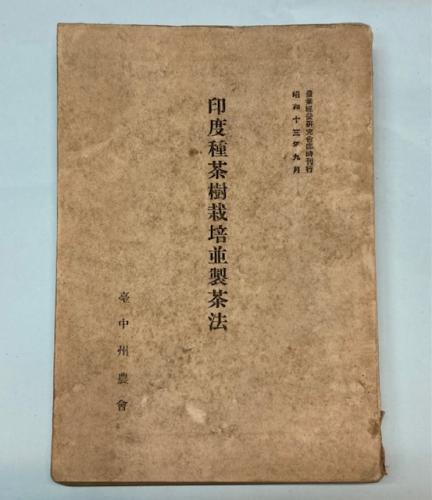 農業経営研究会臨時刊行
昭和十三年九月
印度種茶樹栽培並製茶法
臺中州農會